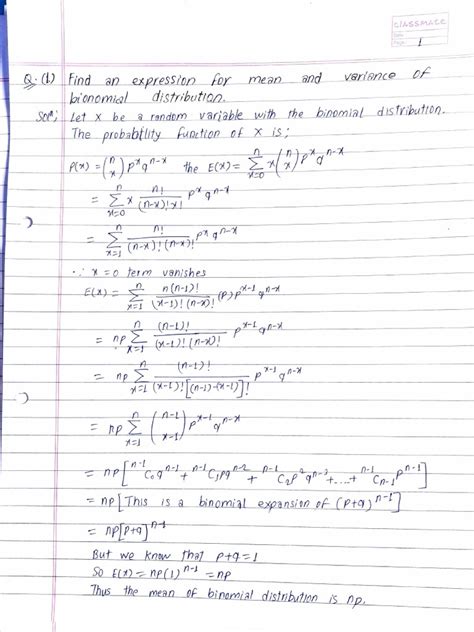 classmate
Date
Page 1
Q.(1) Find an expression for mean and variance of
bionomial distribution.
Solⁿ; Let X be a random variable with the binomial distribution.
The probability function of X is;
P(x) = (n x) p^x q^(n-x) the E(x) = Σ_{x=0}^{n} x (n x) p^x q^(n-x)
= Σ_{x=0}^{n} x n!/((n-x)! x!) p^x q^(n-x)
= Σ_{x=1}^{n} n!/((n-x)! (n-x)!) p^x q^(n-x)
∵ x = 0 term vanishes
E(x) = Σ_{x=1}^{n} n(n-1)!/((x-1)! (n-x)!) (p) p^(x-1) q^(n-x)
= np Σ_{x=1}^{n} (n-1)!/((x-1)! (n-x)!) p^(x-1) q^(n-x)
= np Σ_{x=1}^{n} (n-1)!/((x-1)! [(n-1)-(x-1)]!) p^(x-1) q^(n-x)
= np Σ_{x=1}^{n} (n-1 x-1) p^(x-1) q^(n-x)
= np [ ^(n-1)C₀ q^(n-1) + ^(n-1)C₁ p q^(n-2) + ^(n-1)C₂ p² q^(n-3) + ....+ ^(n-1)C_(n-1) p^(n-1) ]
= np [ This is a binomial expansion of (p+q)^(n-1) ]
= np [p+q]^(n-1)
But we know that p+q = 1
So E(x) = np (1)^(n-1) = np
Thus the mean of binomial distribution is np.